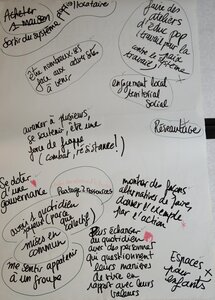 Acheter
1 maison
Sortir du système proprio/locataire
faire des
ateliers
d'éduc pop
travail pour la
contre le
système
être nombreux.ses
face aux adversités
à venir
engagement local
territorial
social
avancer à plusieurs,
se soutenir, être une
force de frappe
(combat, résistance!)
Réseautage
Se doter
d'une
gouvernance
Partage de ressources
avoir 1 quotidien
collectif
mises en
commun
me sentir appartenir
à un groupe
montrer des façons
alternatives de vivre,
donner l'exemple
par l'action
Plus échanger
au quotidien
avec des personnes
qui questionnent
leurs manières
de vivre en
rapport avec leurs
valeurs
Espaces
pour
enfants